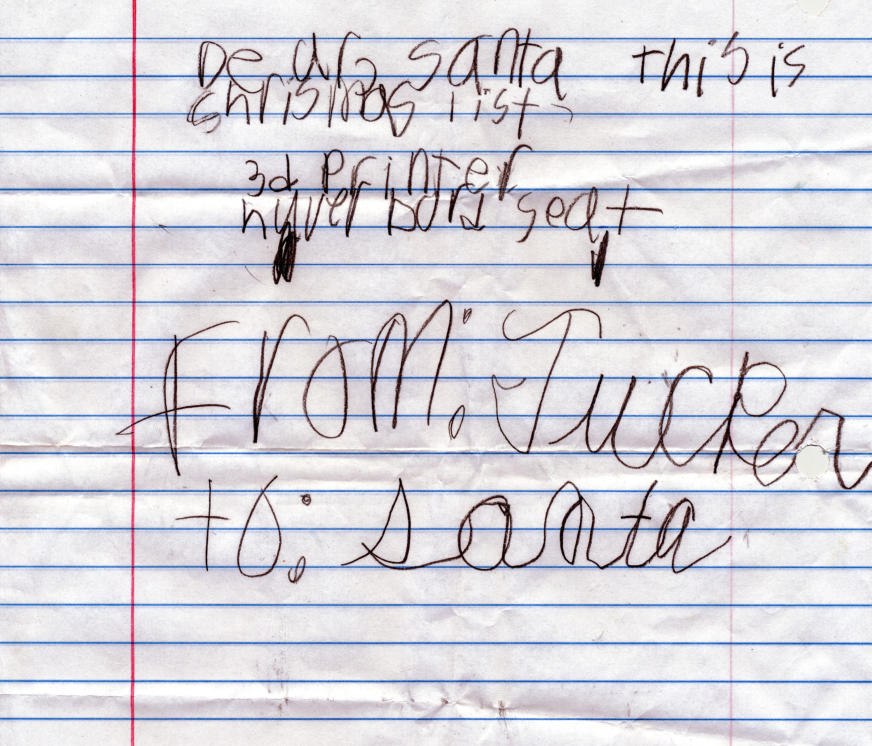 Dear santa this is
shrismas list
3d Printer
hyver bord seat
From: Tucker
to: santa